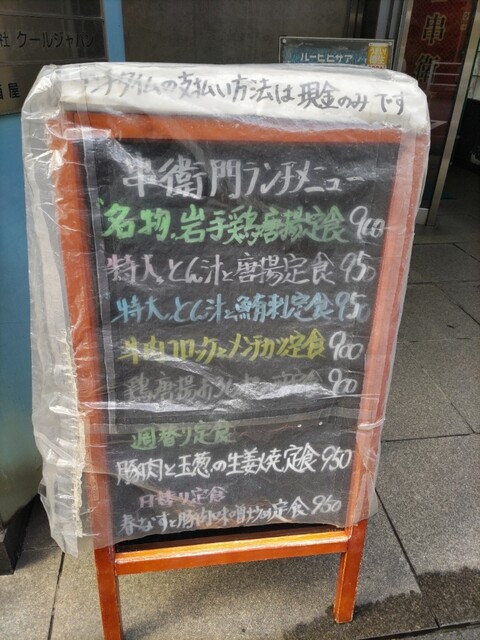 社 クールジャパン
酒屋
ルービヒサア
串衛
ランチタイムの支払い方法は現金のみです
串衛門ランチメニュー
名物、岩手鶏唐揚定食 900
特大、とん汁と唐揚定食 950
特大、とん汁と鮪刺定食 950
牛肉コロッケとメンチカツ定食 900
鶏唐揚おろし 定食 900
週替り定食
豚肉と玉葱の生姜焼定食 950
日替り定食
春なすと豚肉味噌炒め定食 950